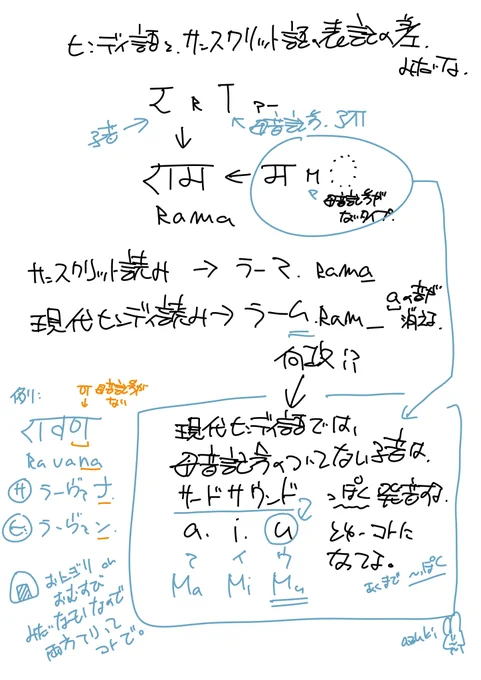 ヒンディ語と、サンスクリット語の表記の差。
みたいな。
र R ा アー
子音→ 母音記号。
↓
राम ← म M
Rama ア 母音記号が
ないタイプ。
サンスクリット読み → ラーマ. Rama
現代ヒンディ読み→ ラーム.Ram_ aの音が
消える。
何故!?
例): ण 母音記号が
ない
रावण
Ravana
サ ラーヴァナ.
ヒ: ラーヴァン.
現代ヒンディ語では、
母音記号のついてない子音は、
サードサウンド っぽく発音する。
a. i. u
ア イ ウ
Ma Mi Mu
コトに
なってよ。
あくまで 〜っぽく
おにぎり or
おむすび
みたいなモンなので
両方アリって
コトで。
azuki